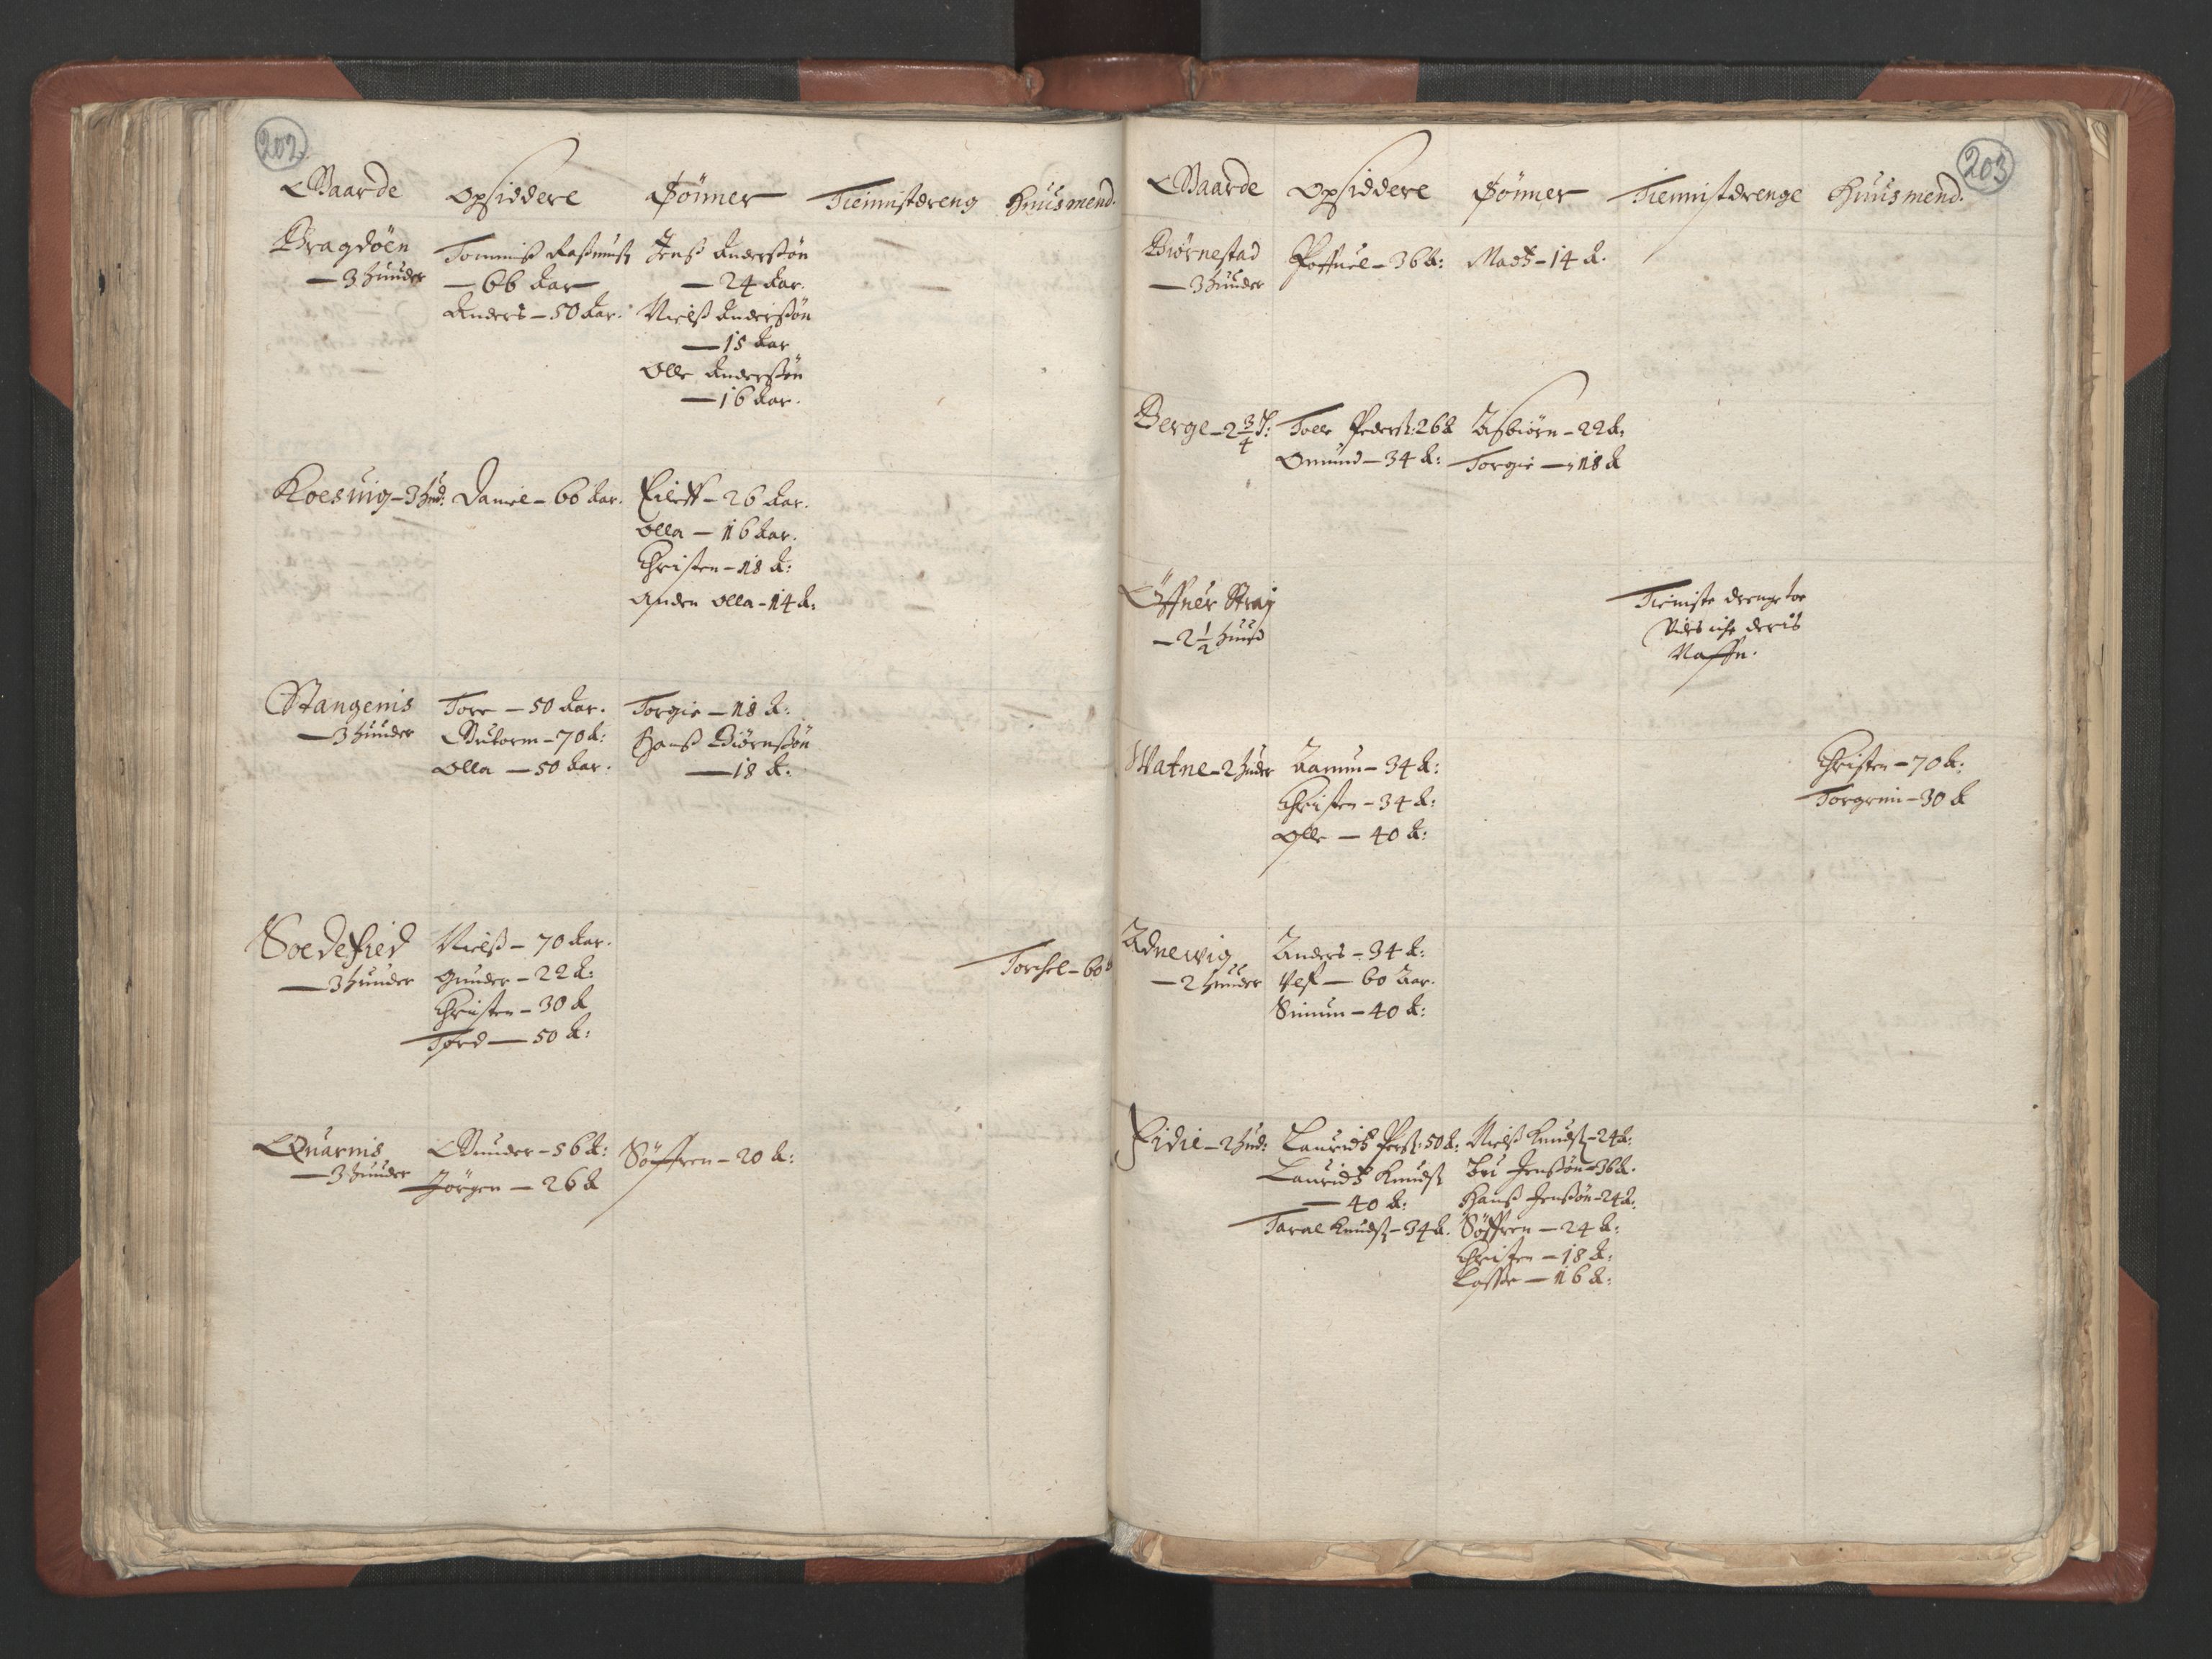 202
Gaarde Opsiddere Sönner Tiennistdreng Huusmend.
Bragdöen
— 3 huuder
Tommiß Raßmuß
— 66 Aar
Anders — 50 Aar.
Jenß Anderßön
— 24 Aar.
Nielß Anderßön
— 18 Aar
Olle Anderßön
— 16 Aar.
Roesuig — 3 hud:
Daniel — 60 Aar.
Eileff — 26 Aar.
Olla — 16 Aar.
Christen — 18 A:
Anden Olla — 14 A:
Stangenis
— 3 huuder
Tore — 50 Aar.
Gutorm — 70 A:
Olla — 50 Aar.
Torgie — 18 A:
Hanß Biörnßön
— 18 A.
Soedefied
— 3 huuder
Nielß — 70 Aar.
Gunder — 22 A:
Christen — 30 A
Tord — 50 A:
Torchel — 60
Quarnis
— 3 huuder
Gunder — 56 A:
Jörgen — 26 A
Söffren — 20 A:
203
Gaarde Opsiddere Sönner Tiennistdrenge Huusmend.
Biörnestad
— 3 huuder
Poffuel — 36 A:
Madß — 14 A.
Berge — 2 3/4 h:
Tolle Pederß: 26 A
Omund — 34 A:
Asbiörn — 22 A.
Torgie — 18 A
Öffuer Straj
— 2 1/2 huud
Tieniste drenge toe
Vides iche deris
Naffn.
Watne — 2 huder
Aamun — 34 A:
Christen — 34 A:
Olle — 40 A:
Christen — 70 A:
Torgrim — 30 A
Adnewig
— 2 huuder
Anders — 34 A:
Ulf — 60 Aar.
Simun — 40 A:
Eidie — 2 hud:
Lauridß Perß: 50 A:
Lauridß Knudß
— 40 A:
Taral Knudß — 34 A.
Nielß Knudß — 24 A:
Jenßön — 36 A.
Hanß Jenßön — 24 A:
Söffren — 24 A:
Christen — 18 A:
Lasse — 16 A: